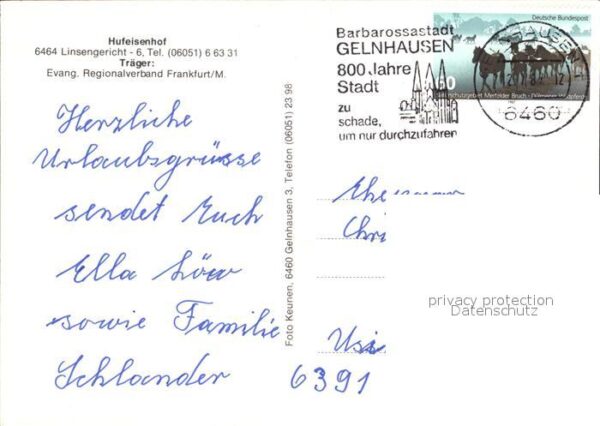 Hufeisenhof
6464 Linsengericht - 6, Tel. (06051) 6 63 31
Träger:
Evang. Regionalverband Frankfurt/M.
Herzliche
Urlaubsgrüsse
sendet Euch
Ella Löw
sowie Familie
Schlander
Foto Keunen, 6460 Gelnhausen 3, Telefon (06051) 23 98
Barbarossastadt
GELNHAUSEN
800 Jahre
Stadt
zu
schade,
um nur durchzufahren
Deutsche Bundespost
6460
Ehe
Chri
privacy protection
Datenschutz
Usi
6391